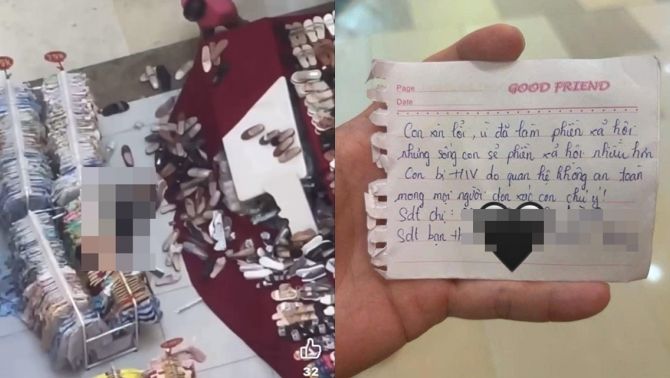 32
Page
GOOD FRIEND
Date
Con xin lỗi, vì đã làm phiền xã hội
nhưng sống con sẽ phiền xã hội nhiều hơn
Con bị HIV do quan hệ không an toàn
mong mọi người dọn xác con chú ý!
Sdt chị:
Sdt bạn